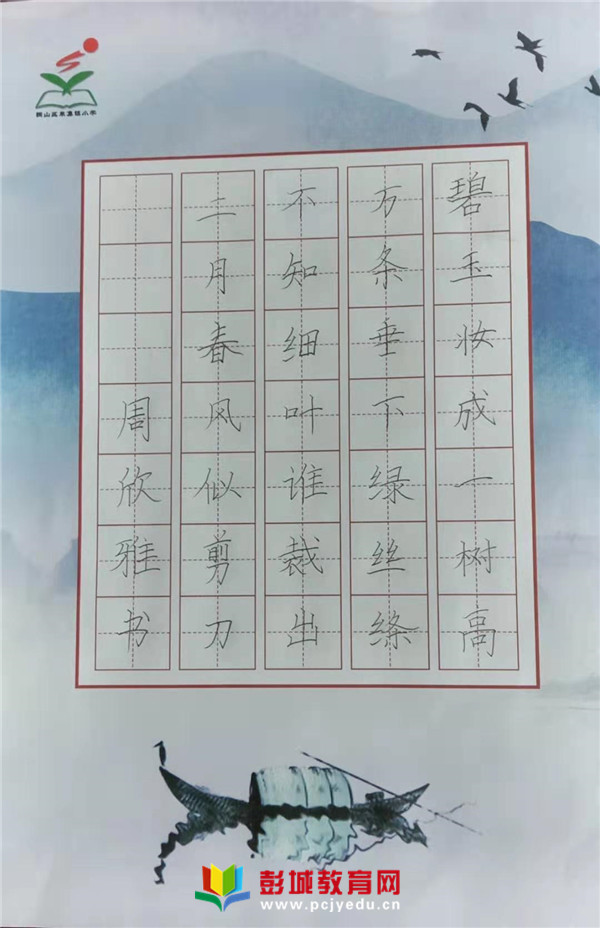 碧玉妆成一树高
万条垂下绿丝绦
不知细叶谁裁出
二月春风似剪刀
周欣雅书
彭城教育网
www.pcjyedu.cn